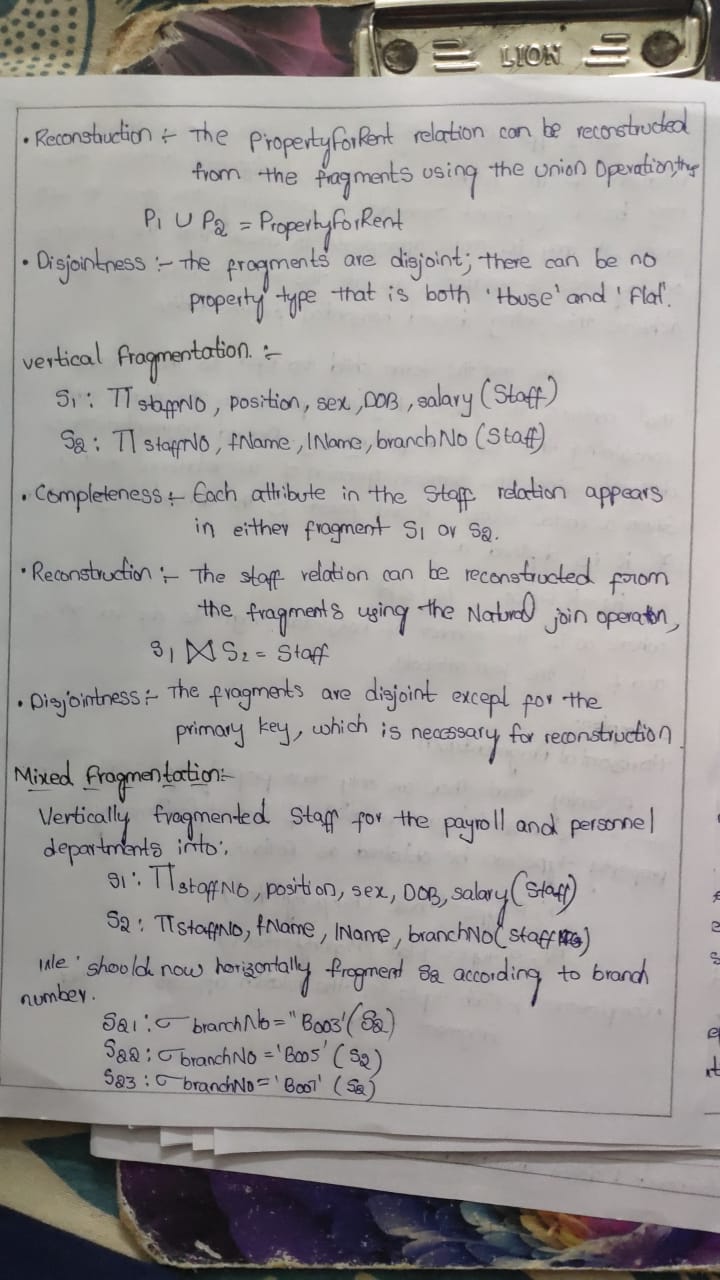 LION
• Reconstruction :- The PropertyForRent relation can be reconstructed
from the fragments using the union Operation, thus
P1 ∪ P2 = PropertyForRent
• Disjointness :- the fragments are disjoint; there can be no
property type that is both 'House' and 'Flat'.
vertical fragmentation. :-
S1 : Π staffNO, position, sex, DOB, salary (Staff)
S2 : Π staffNO, fName, lName, branchNo (Staff)
• Completeness :- Each attribute in the Staff relation appears
in either fragment S1 or S2.
• Reconstruction :- The staff relation can be reconstructed from
the fragments using the Natural join operation,
S1 ⋈ S2 = Staff
• Disjointness :- The fragments are disjoint except for the
primary key, which is necessary for reconstruction.
Mixed fragmentation:-
Vertically fragmented Staff for the payroll and personnel
departments into:
S1 : Π staffNO, position, sex, DOB, salary (Staff)
S2 : Π staffNO, fName, lName, branchNo (staff)
We should now horizontally fragment S2 according to branch
number.
S21 : σ branchNo = "B003' (S2)
S22 : σ branchNo = 'B005' (S2)
S23 : σ branchNo = 'B007' (S2)